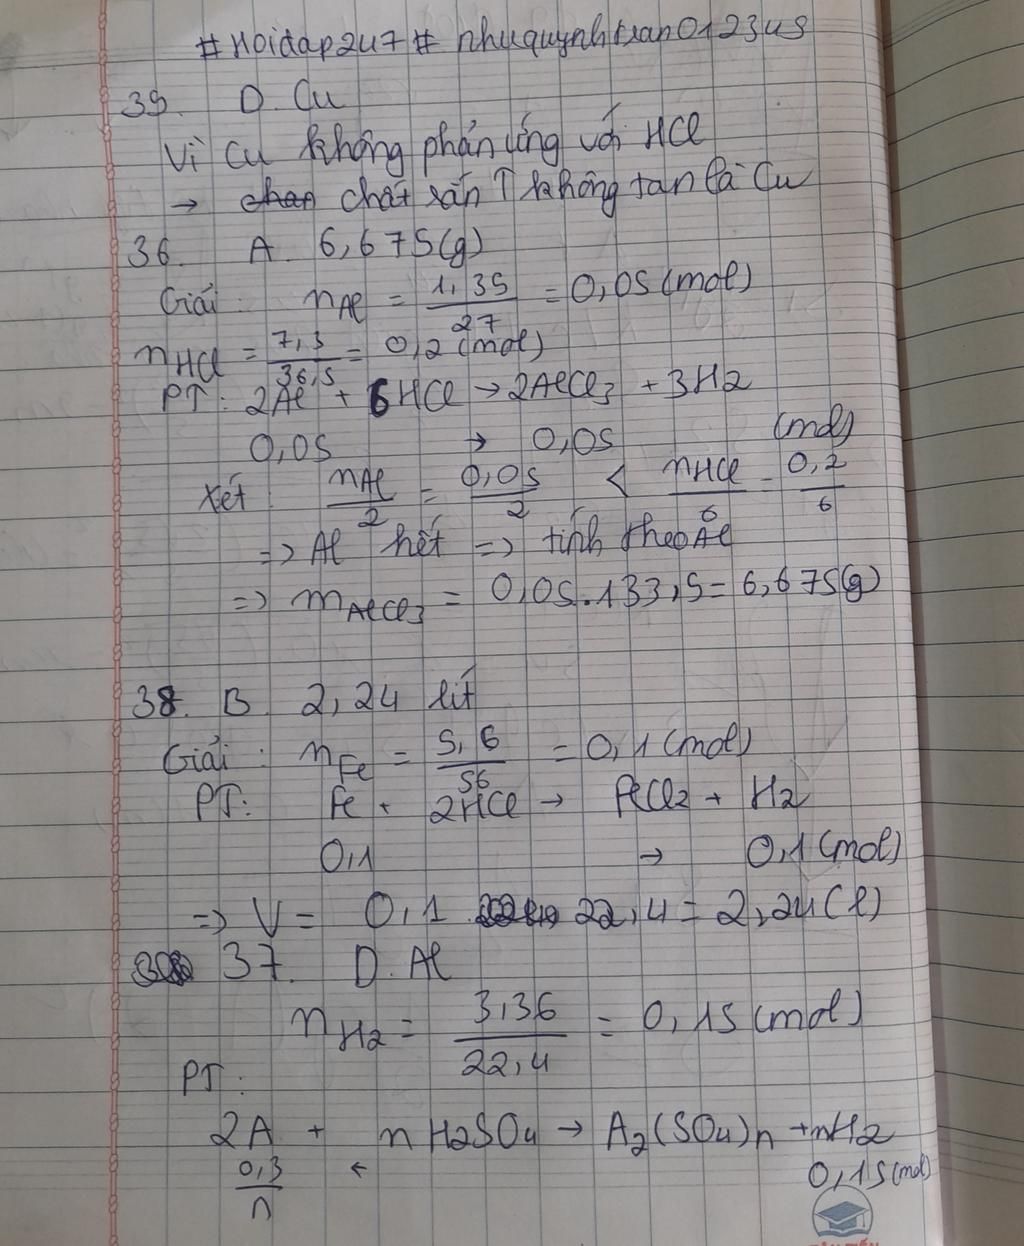 #Hoidap247# nhuquynhtran012345
39. D. Cu
Vì Cu không phản ứng với HCl
→ chất rắn ↑ không tan là Cu
36. A. 6,675(g)
Giải: nAl = 1,35/27 = 0,05(mol)
nHCl = 7,3/36,5 = 0,2(mol)
PT: 2Al + 6HCl → 2AlCl3 + 3H2
0,05 → 0,05 (mol)
Xét: nAl/2 = 0,05/2 < nHCl/6 = 0,2/6
=> Al hết => tính theo Al
=> mAlCl3 = 0,05.133,5 = 6,675(g)
38. B. 2,24 lít
Giải: nFe = 5,6/56 = 0,1(mol)
PT: Fe + 2HCl → FeCl2 + H2
0,1 → 0,1(mol)
=> V = 0,1 . 22,4 = 2,24(l)
37. D. Al
nH2 = 3,36/22,4 = 0,15(mol)
PT:
2A + nH2SO4 → A2(SO4)n + nH2
0,3/n ← 0,15(mol)